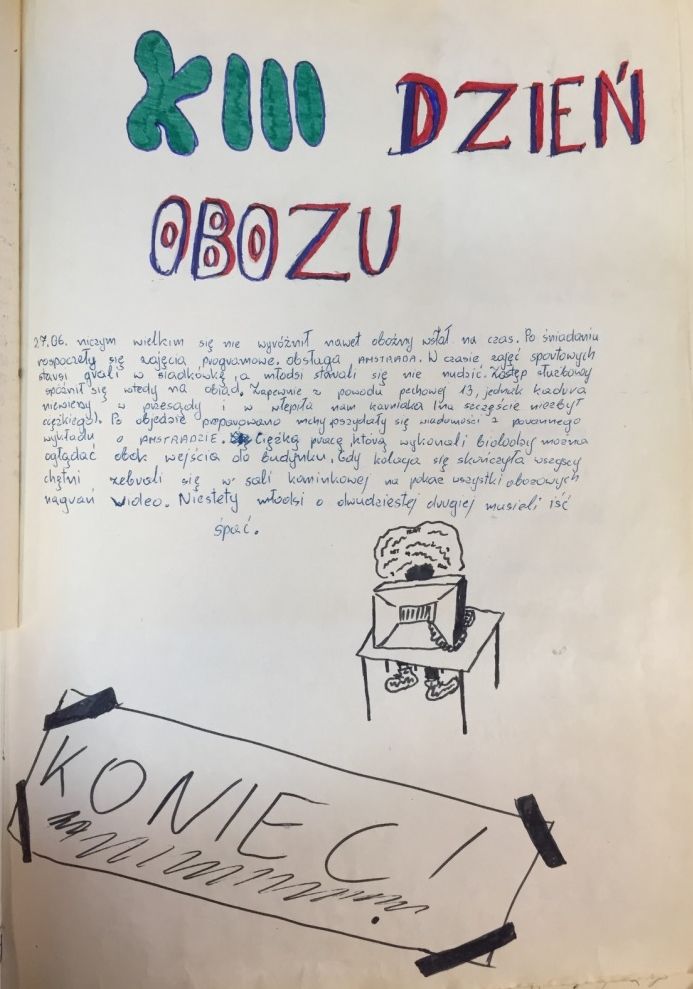 XIII DZIEŃ
OBOZU
27.06. niczym wielkim się nie wyróżnił nawet oboźny wstał na czas. Po śniadaniu
rospoczęły się zajęcia programowe. obsługa AMSTRADA. W czasie zajęć sportowych
starsi grali w siadkówkę, a młodsi starali się nie nudzić. Zastęp służbowy
spóźnił się wtedy na obiad. Zapewnie z powodu pechowej 13, jednak kadra
niewierzy w przesądy i w wlepiła nam karniaka (na szczęście niezbyt
ciężkiego). Po objedzie preparowano mchy poszydały się wiadomości z porannego
wykładu o AMSTRADZIE. Ciężką pracę którą wykonali biolodzy można
oglądać obok wejścia do budynku. Gdy kolacja się skończyła wszyscy
chętni zebrali się w sali kominkowej na pokaz wszystki obozowych
nagrań video. Niestety młodsi o dwudziestej drugiej musieli iść
spać.
KONIEC!